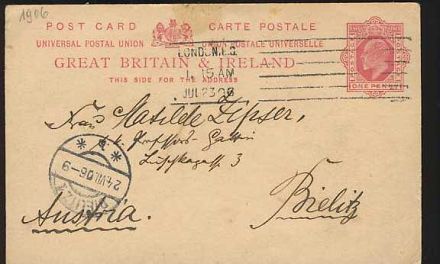 1906
POST CARD CARTE POSTALE
UNIVERSAL POSTAL UNION UNION POSTALE UNIVERSELLE
GREAT BRITAIN & IRELAND
THIS SIDE FOR THE ADDRESS
ONE PENNY
LONDON. N.E.
1. 15 AM
JUL 23 06
Frau Matilde Zipser,
k.k. Professors-Gattin
3
Bielitz
Austria.
24.VII.06-9
BIELITZ